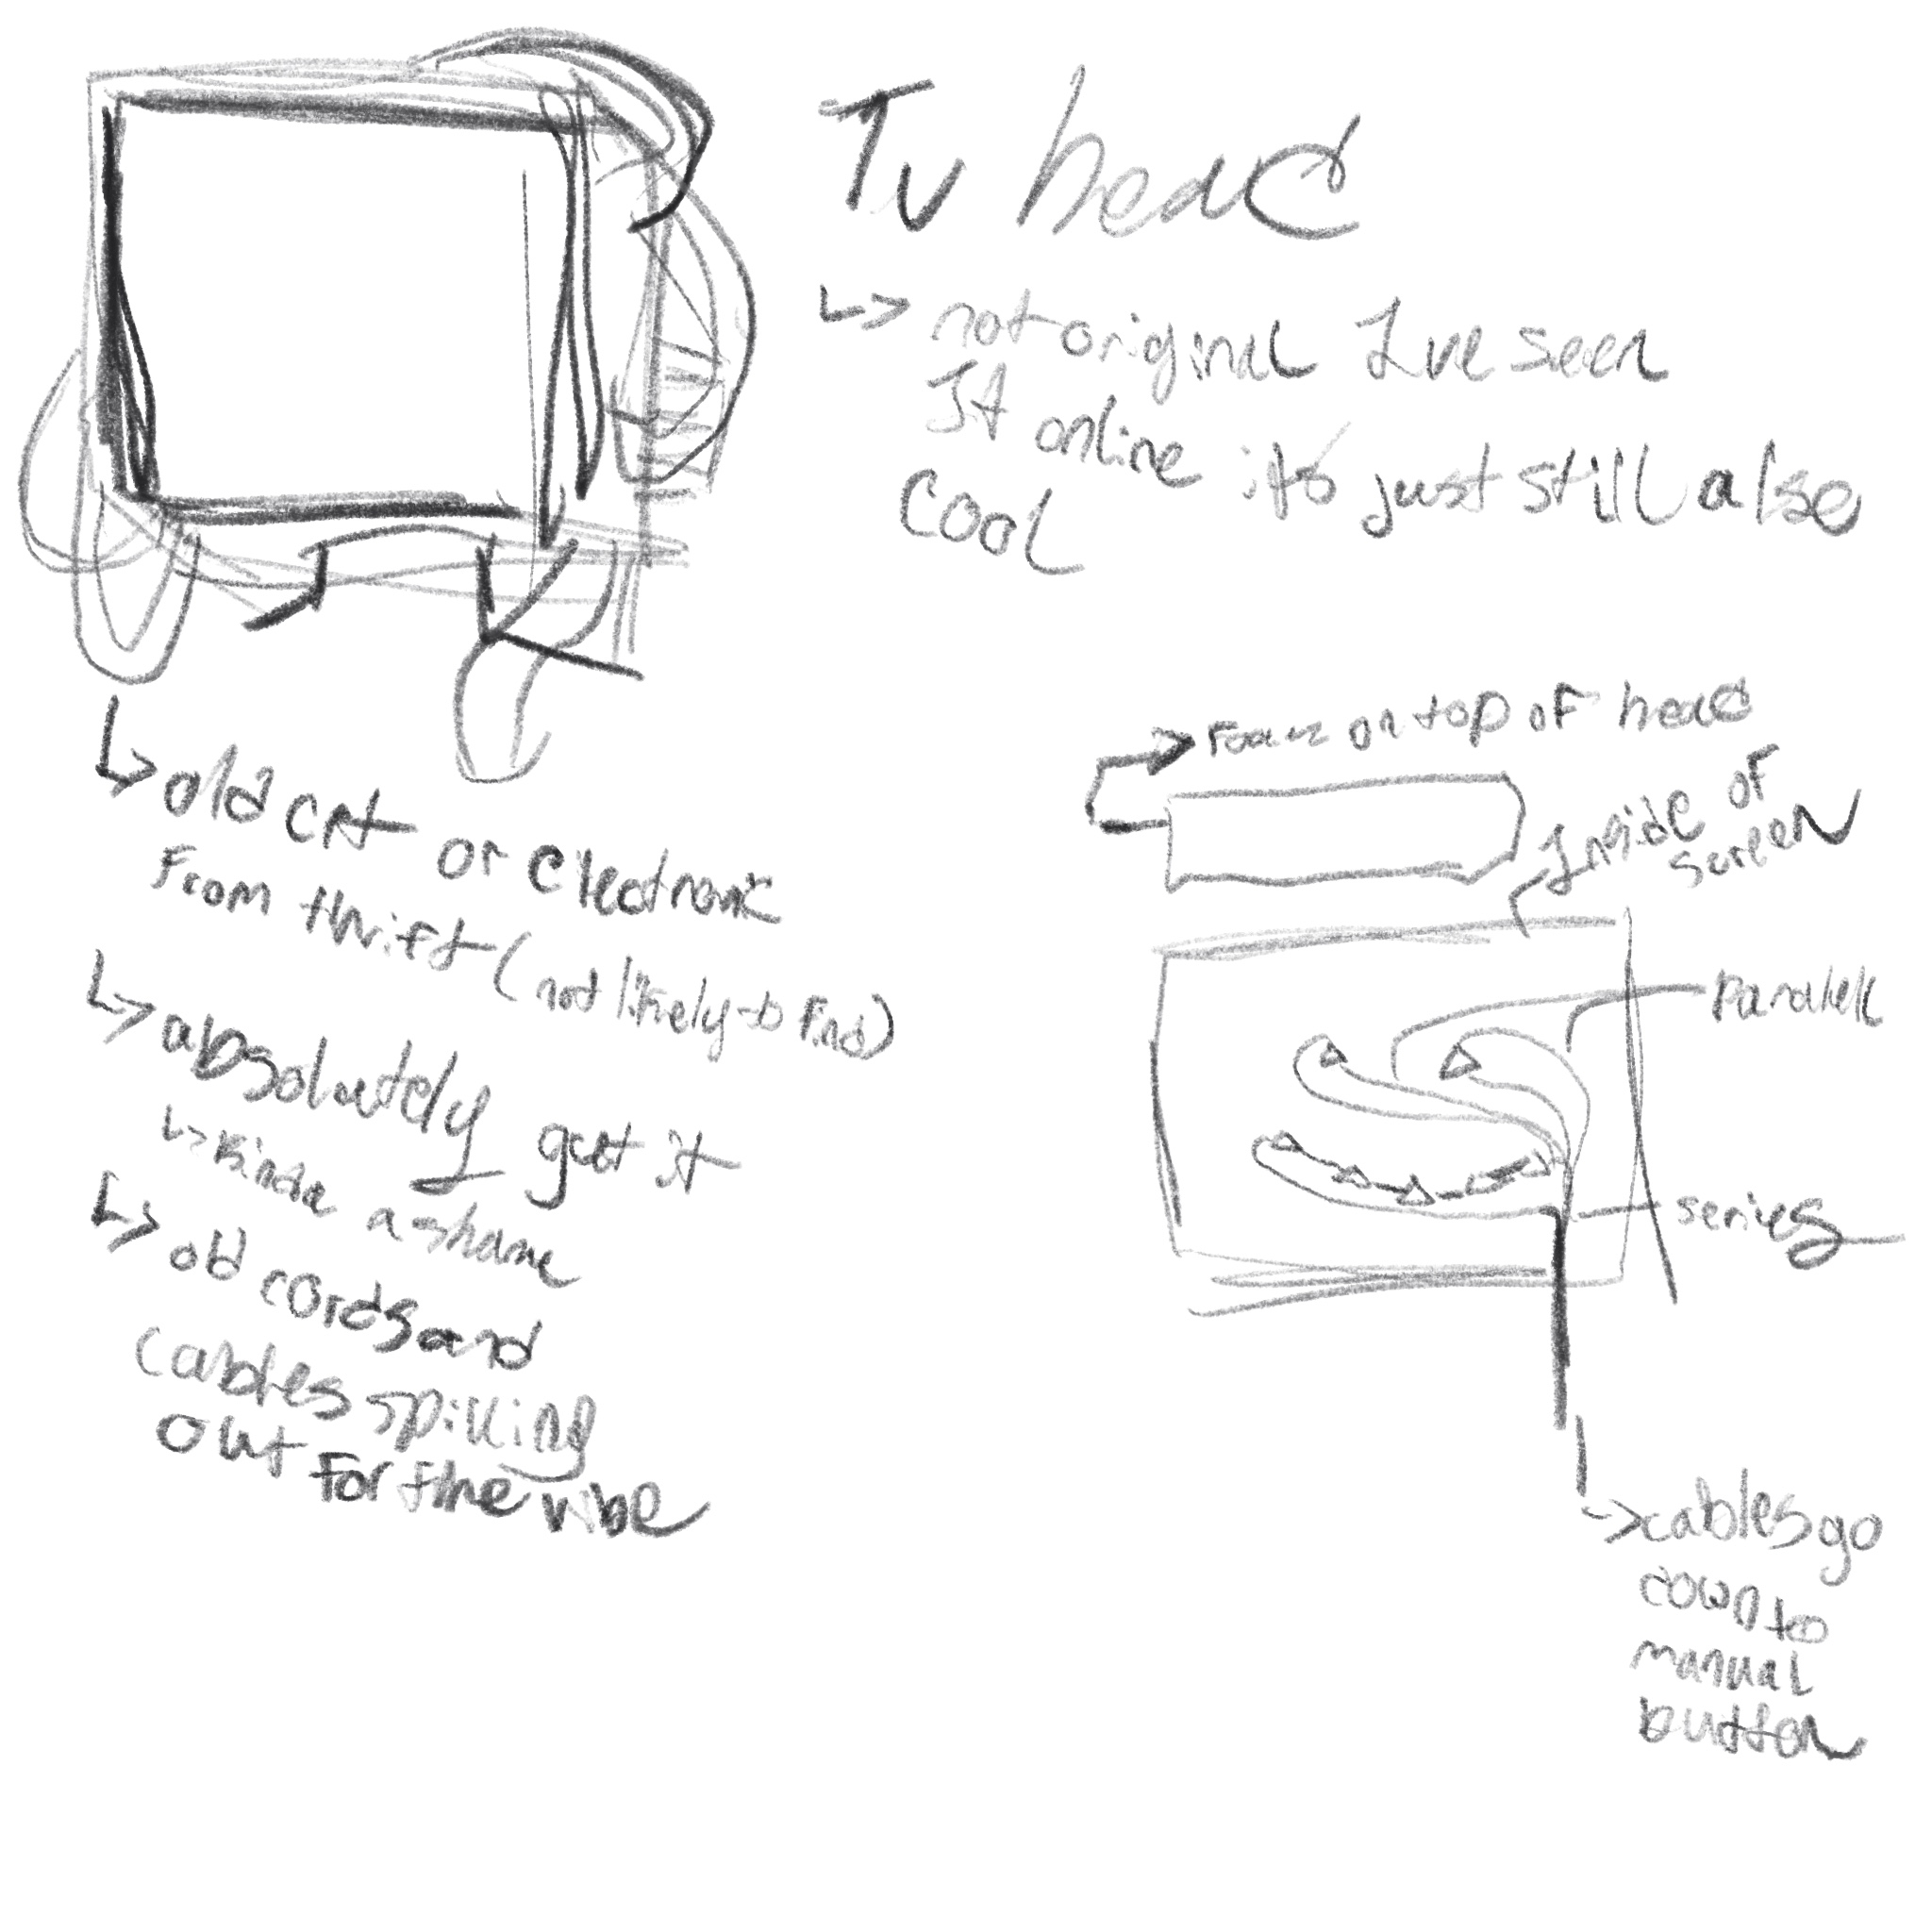 Tv head
↳ not original I've seen
It online its just still alse
cool
↳ old crt or electronic
From thrift (not likely to find)
↳ absolutely gut it
↳ kinda a shame
↳ old cords and
cables spilling
out for the vibe
→ Foam on top of head
Inside of
screen
Parallell
series
↳ cables go
down to
manual
button